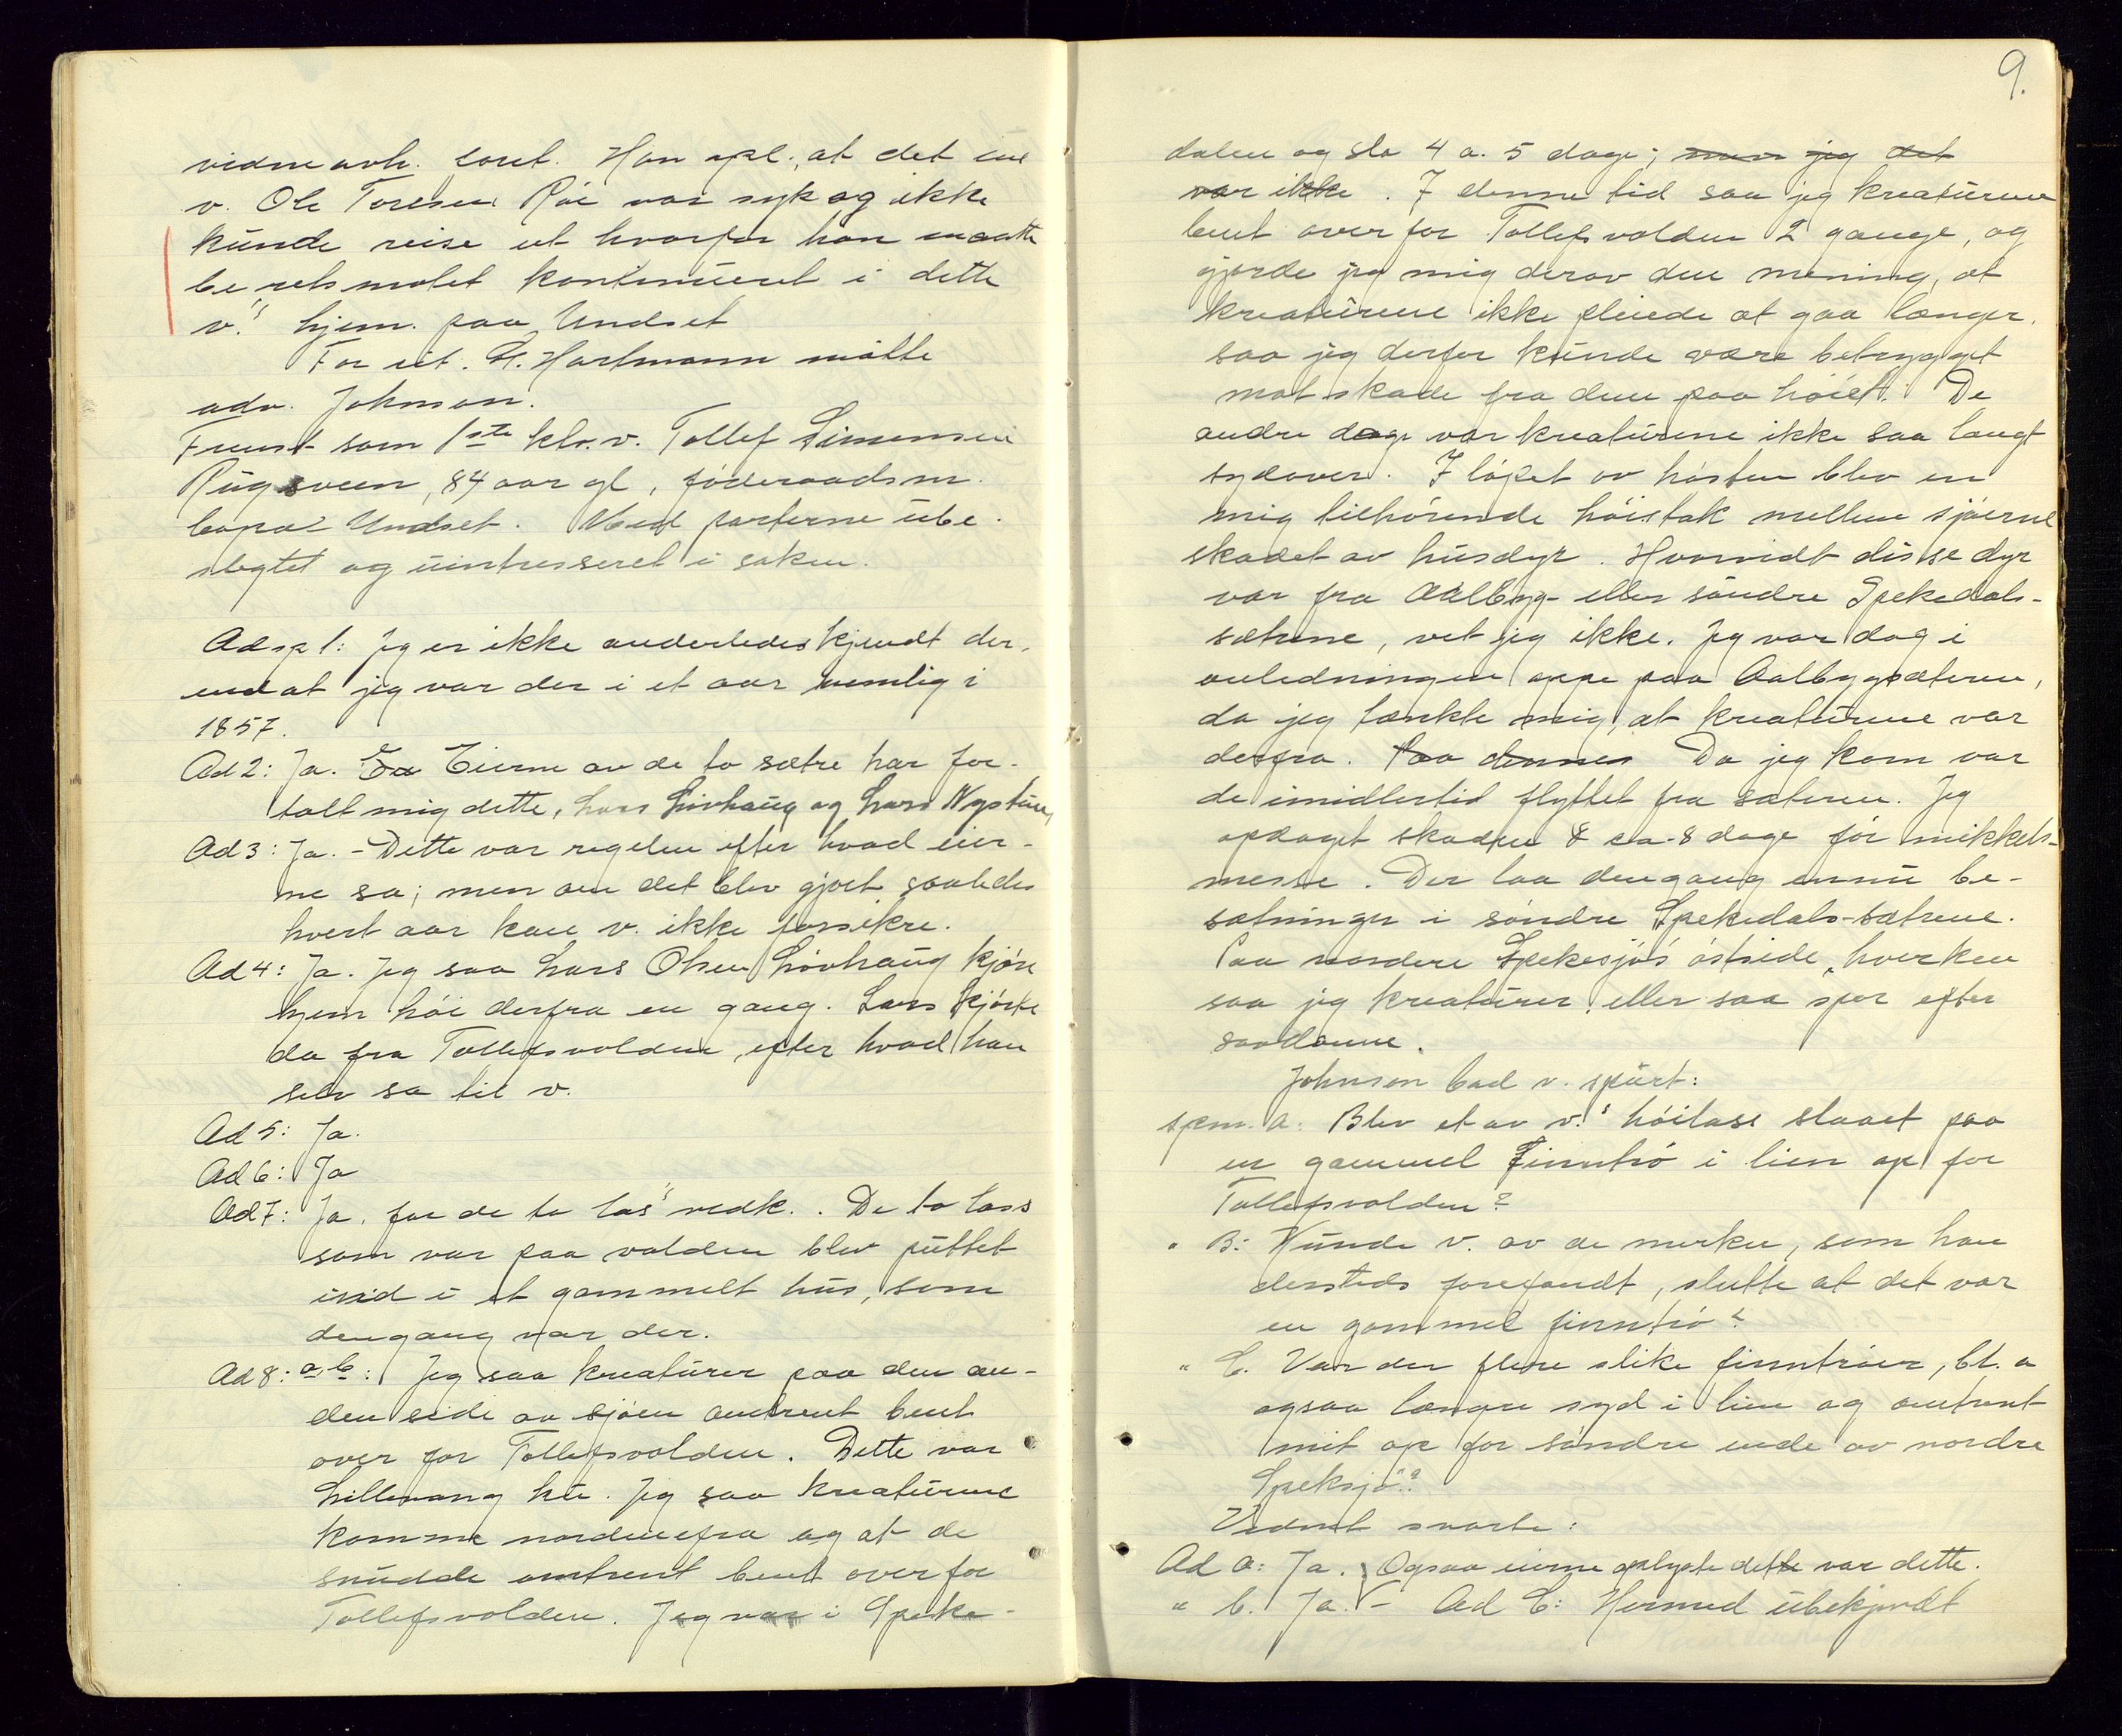 vidneavh. loret. Han opl., at det ene
v. Ole Toresen Röe var syk og ikke
kunde reise ut hvorfor han maatte
be retsmötet kontinueret i dette
v.'s hjem paa Undset
For cit. G. Hartmann mötte
adv. Johnson.
Fremst. som 1ste klr. v. Tollef Simensen
Rugsveen, 84 aar gl, föderaadsm.
bopæl Undset. Med parterne ube-
slegtet og uintresseret i saken.
Ad sp 1: Jeg er ikke anderledes kjendt der,
end at jeg var der i et aar nemlig i
1857.
Ad 2: Ja. Ea Eierne av de to sætre har for-
talt mig dette, Lars Lövhaug og Lars Nystuen,
Ad 3: Ja. - Dette var regelen efter hvad eier-
ne sa; men om det blev gjort saaledes
hvert aar kan v. ikke forsikre.
Ad 4: Ja. Jeg saa Lars Olsen Lövhaug kjöre
hjem höi derfra en gang. Lars kjörte
da fra Tollefsvolden, efter hvad han
selv sa til v.
Ad 5: Ja.
Ad 6: Ja
Ad 7: Ja, for de to las's vedk.. De to lass
som var paa volden blev puttet
ind i et gammelt hus, som
dengang var der.
Ad 8: a, b: Jeg saa kreaturer paa den an-
den side av sjöen omtrent bent
over for Tollefsvolden. Dette var
Lillevang kr. Jeg saa kreaturene
komme nordenefra og at de
snudde omtrent bent over for
Tollefsvolden. Jeg var i Speke-
9.
dalen og slo 4 a. 5 dage; men jeg det
var ikke. I denne tid saa jeg kreaturene
bent over for Tollefsvolden 2 gange, og
gjorde jeg mig derav den mening, at
kreaturene ikke pleiede at gaa længer,
saa jeg derfor kunde være betrygget
mot skade fra dem paa höiet. De
andre dage var kreaturene ikke saa langt
sydover. I löpet av hösten blev en
mig tilhörende höistak mellem sjöerne
skadet av husdyr. Hvorvidt disse dyr
var fra Aalbyg- eller söndre Spekedals-
sætrene, vet jeg ikke. Jeg var dog i
anledningen oppe paa Aalbygsæteren,
da jeg tænkte mig, at kreaturene var
derfra. Paa dennes Da jeg kom var
de imidlertid flyttet fra sæteren. Jeg
opdaget skaden 8 ca. 8 dage för mikkels-
messe. Der laa dengang ennu be-
sætninger i söndre Spekedals-sætrene.
Paa nordere Spekesjö's östside, hverken
saa jeg kreaturer eller saa spor efter
saadanne.
Johnson bad v. spurt:
spm. a: Blev et av v.'s höilass slaaet paa
en gammel Finntrö i lien op for
Tollefsvolden?
" B: Kunde v. av de merker, som han
dersteds forefandt, slutte at det var
en gammel finntrö?
" C. Var der flere slike finntröer, bl. a
ogsaa længer syd i lien og omtrent
mit op for söndre ende av nordre
Speksjö"?
Vidnet svarte:
Ad a: Ja. Ogsaa eierne oplyste dette var dette.
" b. Ja. - Ad C: Hermed ubekjendt